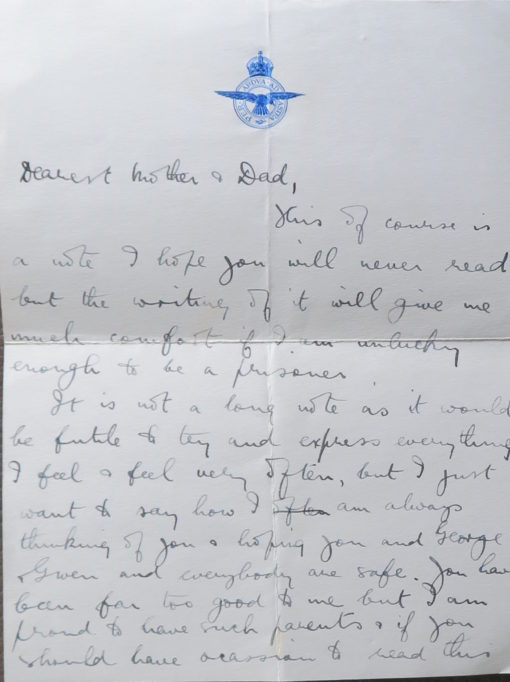 PER ARDVA AD ASTRA
Dearest Mother & Dad,
This of course is
a note I hope you will never read
but the writing of it will give me
much comfort if I am unlucky
enough to be a prisoner
It is not a long note as it would
be futile to try and express everything
I feel & feel very often, but I just
want to say how I often am always
thinking of you & hoping you and George
& Gwen and everybody are safe. You have
been far too good to me but I am
proud to have such parents & if you
should have ocassion to read this